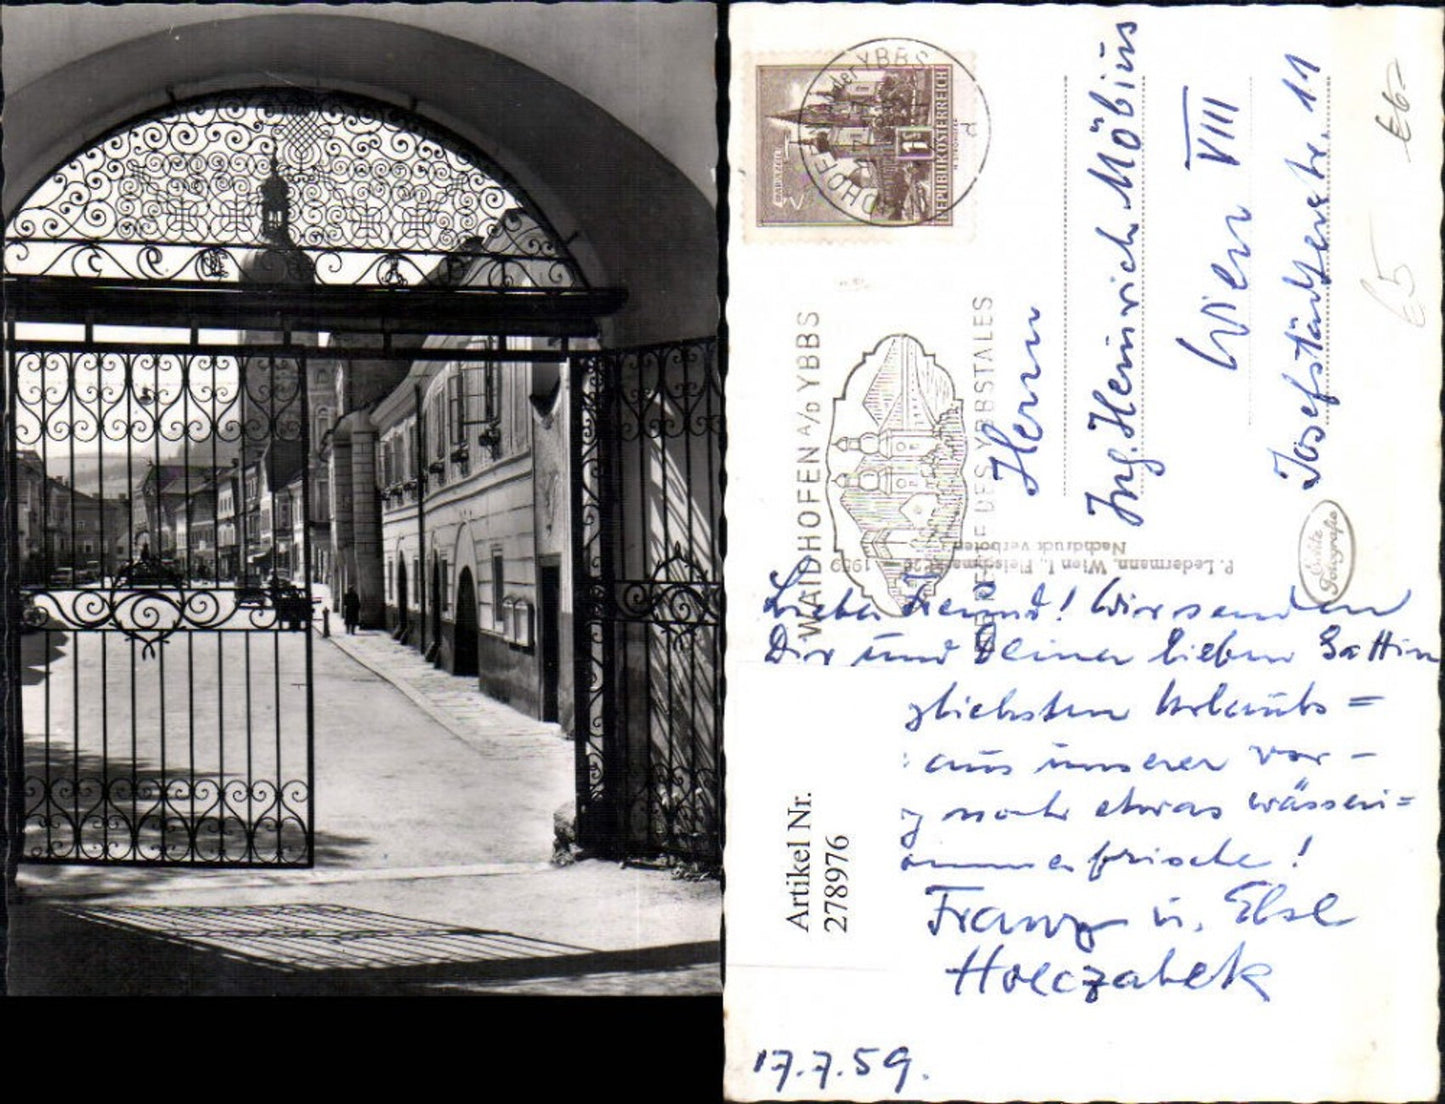 der YBBS
d
REPUBLIK ÖSTERREICH
MARIAZELL
1S
WAIDHOFEN A/D YBBS
DES YBBSTALES
Herrn
Ing. Heinrich Möbius
Wien VIII
Josefstädterstr. 11
€6-
€5
P. Ledermann, Wien I., Fleischmarkt 20 1959
Nachdruck verboten
Echte
Fotografie
Lieber Freund! Wir senden
Dir und Deiner lieben Gattin
zlichsten Urlaubs=
aus unserer vor-
g noch etwas wässeri=
ommerfrische!
Franz u. Else
Holczabek
17.7.59.
Artikel Nr.
278976